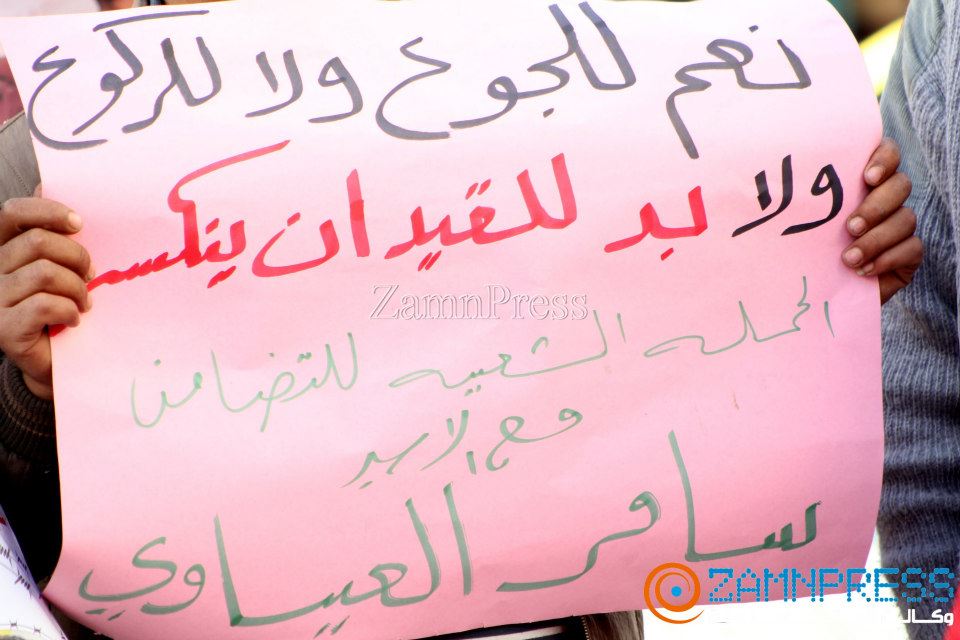 نعم للجوع ولا للركوع
ولا بد للقيد ان ينكسر
ZamnPress
الحمله الشعبيه للتضامن
مع الاسير
سامر العيساوي
ZAMNPRESS